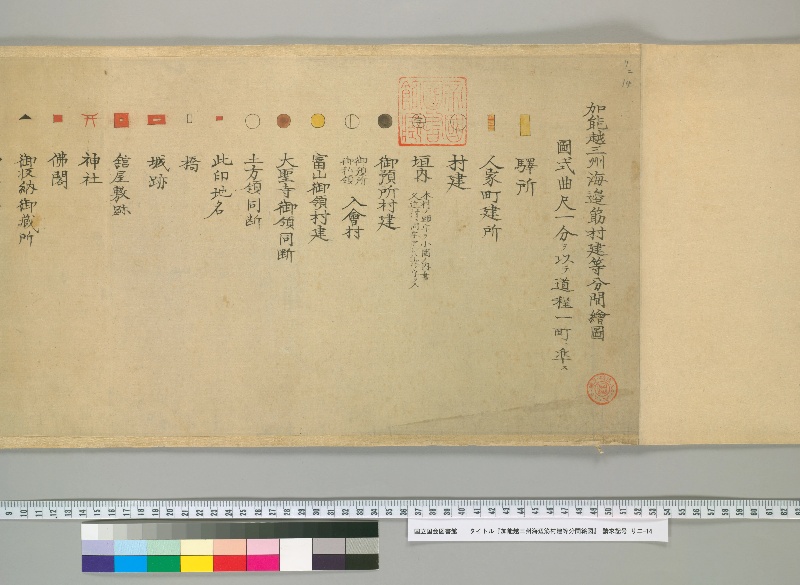 加能越三州海邉筋村建等分間繪圖
圖式曲尺一分ヲ以テ道程一町ニ準ス
驛所
人家町建所
村建
垣内
御預所村建
御預所
入會村
富山御領村建
大聖寺御領同断
土方領同断
此印地名
橋
城跡
舘屋敷跡
神社
佛閣
御収納御蔵所
国立国会図書館 タイトル『加能越三州海辺筋村建等分間絵図』 請求記号 リニ-14